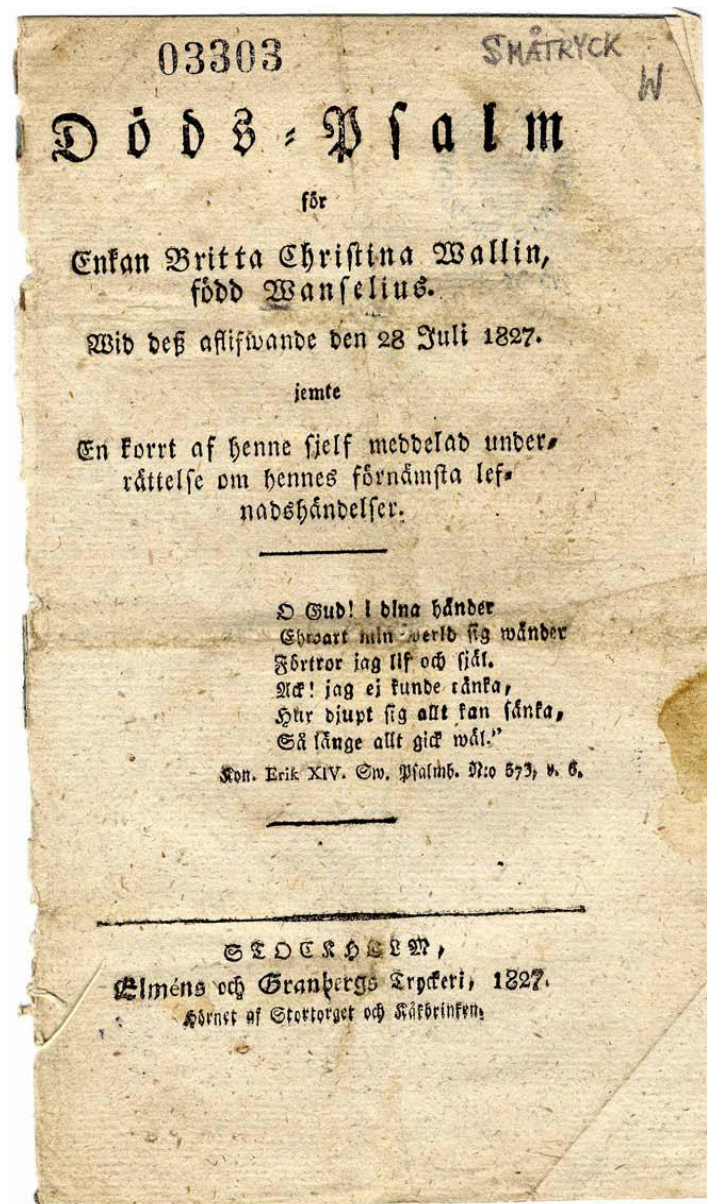 03303
SMÅTRYCK
W
Döds-Psalm
för
Enkan Britta Christina Wallin,
född Wanselius.
Wid deß aflifwande den 28 Juli 1827.
jemte
En korrt af henne sjelf meddelad under-
rättelse om hennes förnämsta lef-
nadshändelser.
O Gud! i dina händer
Ehwart min werld sig wänder
Förtror jag lif och själ.
Ack! jag ej kunde tänka,
Hur djupt sig allt kan sänka,
Så länge allt gick wäl."
Kon. Erik XIV. Sw. Psalmb. N:o 373, v. 6.
STOCKHOLM,
Elméns och Granbergs Tryckeri, 1827.
Hörnet af Stortorget och Kåkbrinken.